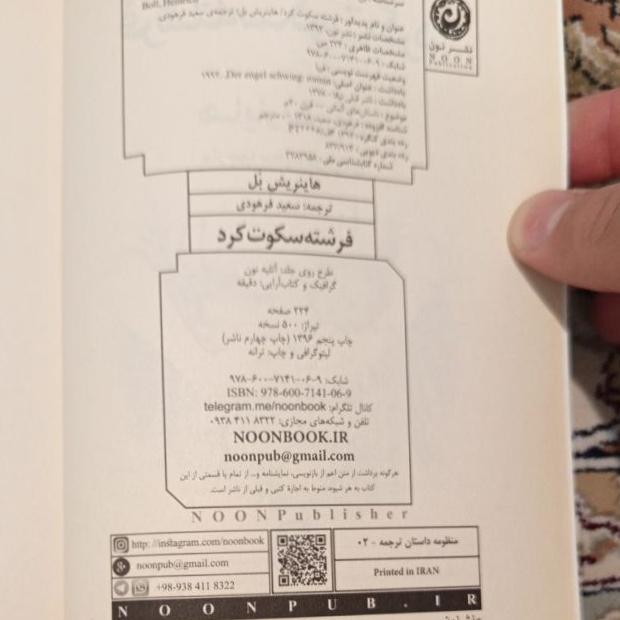 Boll, Heinrich
عنوان و نام پدیدآور: فرشته سکوت کرد/ هاینریش بل؛ ترجمه‌ی سعید فرهودی.
مشخصات نشر: نشر نون، ۱۳۹۲.
مشخصات ظاهری: ۲۲۴ ص.
شابک: ۹-۰۶-۷۱۴۱-۶۰۰-۹۷۸
وضعیت فهرست نویسی: فیپا
یادداشت: عنوان اصلی: Der engel schwieg: roman, 1992.
موضوع: داستان‌های آلمانی -- قرن ۲۰م
شناسه افزوده: فرهودی، سعید، ۱۳۱۸ - ، مترجم
رده بندی دیویی: ۸۳۳/۹۱۴
شماره کتابشناسی ملی:
نشر نون
NOON
PUBLICATION
هاینریش بُل
ترجمه: سعید فرهودی
فرشته سکوت کرد
طرح روی جلد: آتلیه نون
گرافیک و کتاب‌آرایی: دقیقه
۲۲۴ صفحه
تیراژ: ۵۰۰ نسخه
چاپ پنجم ۱۳۹۶ (چاپ چهارم ناشر)
لیتوگرافی و چاپ: ترانه
شابک: ۹-۰۶-۷۱۴۱-۶۰۰-۹۷۸
ISBN: 978-600-7141-06-9
کانال تلگرام: telegram.me/noonbook
تلفن و شبکه‌های مجازی: ۰۹۳۸ ۴۱۱ ۸۳۲۲
NOONBOOK.IR
noonpub@gmail.com
هرگونه برداشت از متن اعم از بازنویسی، نمایشنامه و... از تمام یا قسمتی از این
کتاب به هر شیوه، منوط به اجازهٔ کتبی و قبلی از ناشر است.
NOONPublisher
http: //instagram.com/noonbook
noonpub@gmail.com
+98-938 411 8322
منظومه داستان ترجمه - ۰۲
Printed in IRAN
NOONPUB.IR